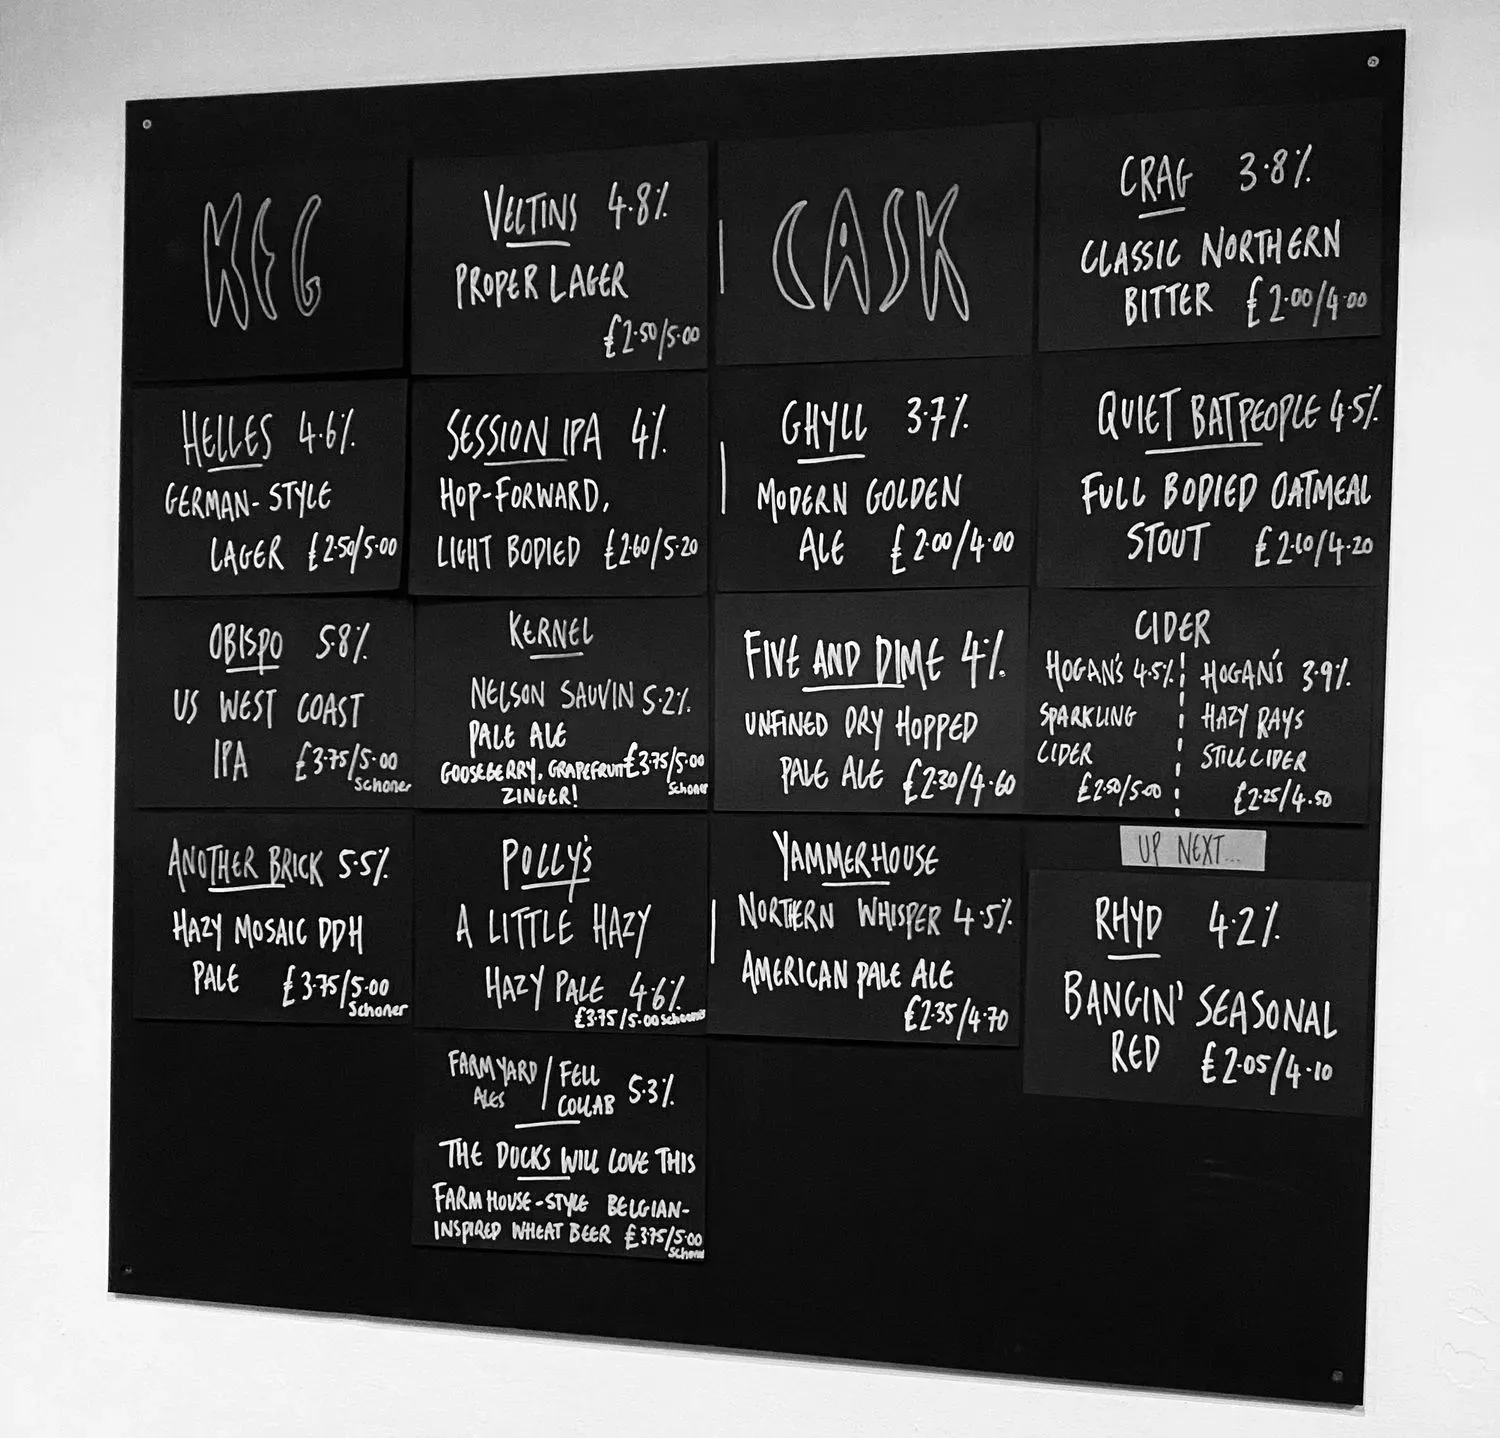 KEG
VELTINS 4.8%
PROPER LAGER
£2.50/5.00
HELLES 4.6%
GERMAN-STYLE
LAGER £2.50/5.00
SESSION IPA 4%
HOP-FORWARD,
LIGHT BODIED £2.60/5.20
OBISPO 5.8%
US WEST COAST
IPA £3.75/5.00
Schoner
KERNEL
NELSON SAUVIN 5.2%
PALE ALE
GOOSEBERRY, GRAPEFRUIT £3.75/5.00
ZINGER! Schoner
ANOTHER BRICK 5.5%
HAZY MOSAIC DDH
PALE £3.75/5.00
Schoner
POLLY'S
A LITTLE HAZY
HAZY PALE 4.6%
£3.75/5.00
FARMYARD / FELL
ALES COLLAB 5.3%
THE DUCKS WILL LOVE THIS
FARMHOUSE-STYLE BELGIAN-
INSPIRED WHEAT BEER £3.75/5.00
CASK
CRAG 3.8%
CLASSIC NORTHERN
BITTER £2.00/4.00
GHYLL 3.7%
MODERN GOLDEN
ALE £2.00/4.00
QUIET BATPEOPLE 4.5%
FULL BODIED OATMEAL
STOUT £2.10/4.20
FIVE AND DIME 4%
UNFINED DRY HOPPED
PALE ALE £2.30/4.60
CIDER
HOGAN'S 4.5%
SPARKLING
CIDER
£2.50/5.00
HOGAN'S 3.9%
HAZY RAYS
STILL CIDER
£2.25/4.50
YAMMERHOUSE
NORTHERN WHISPER 4.5%
AMERICAN PALE ALE
£2.35/4.70
UP NEXT...
RHYD 4.2%
BANGIN' SEASONAL
RED £2.05/4.10